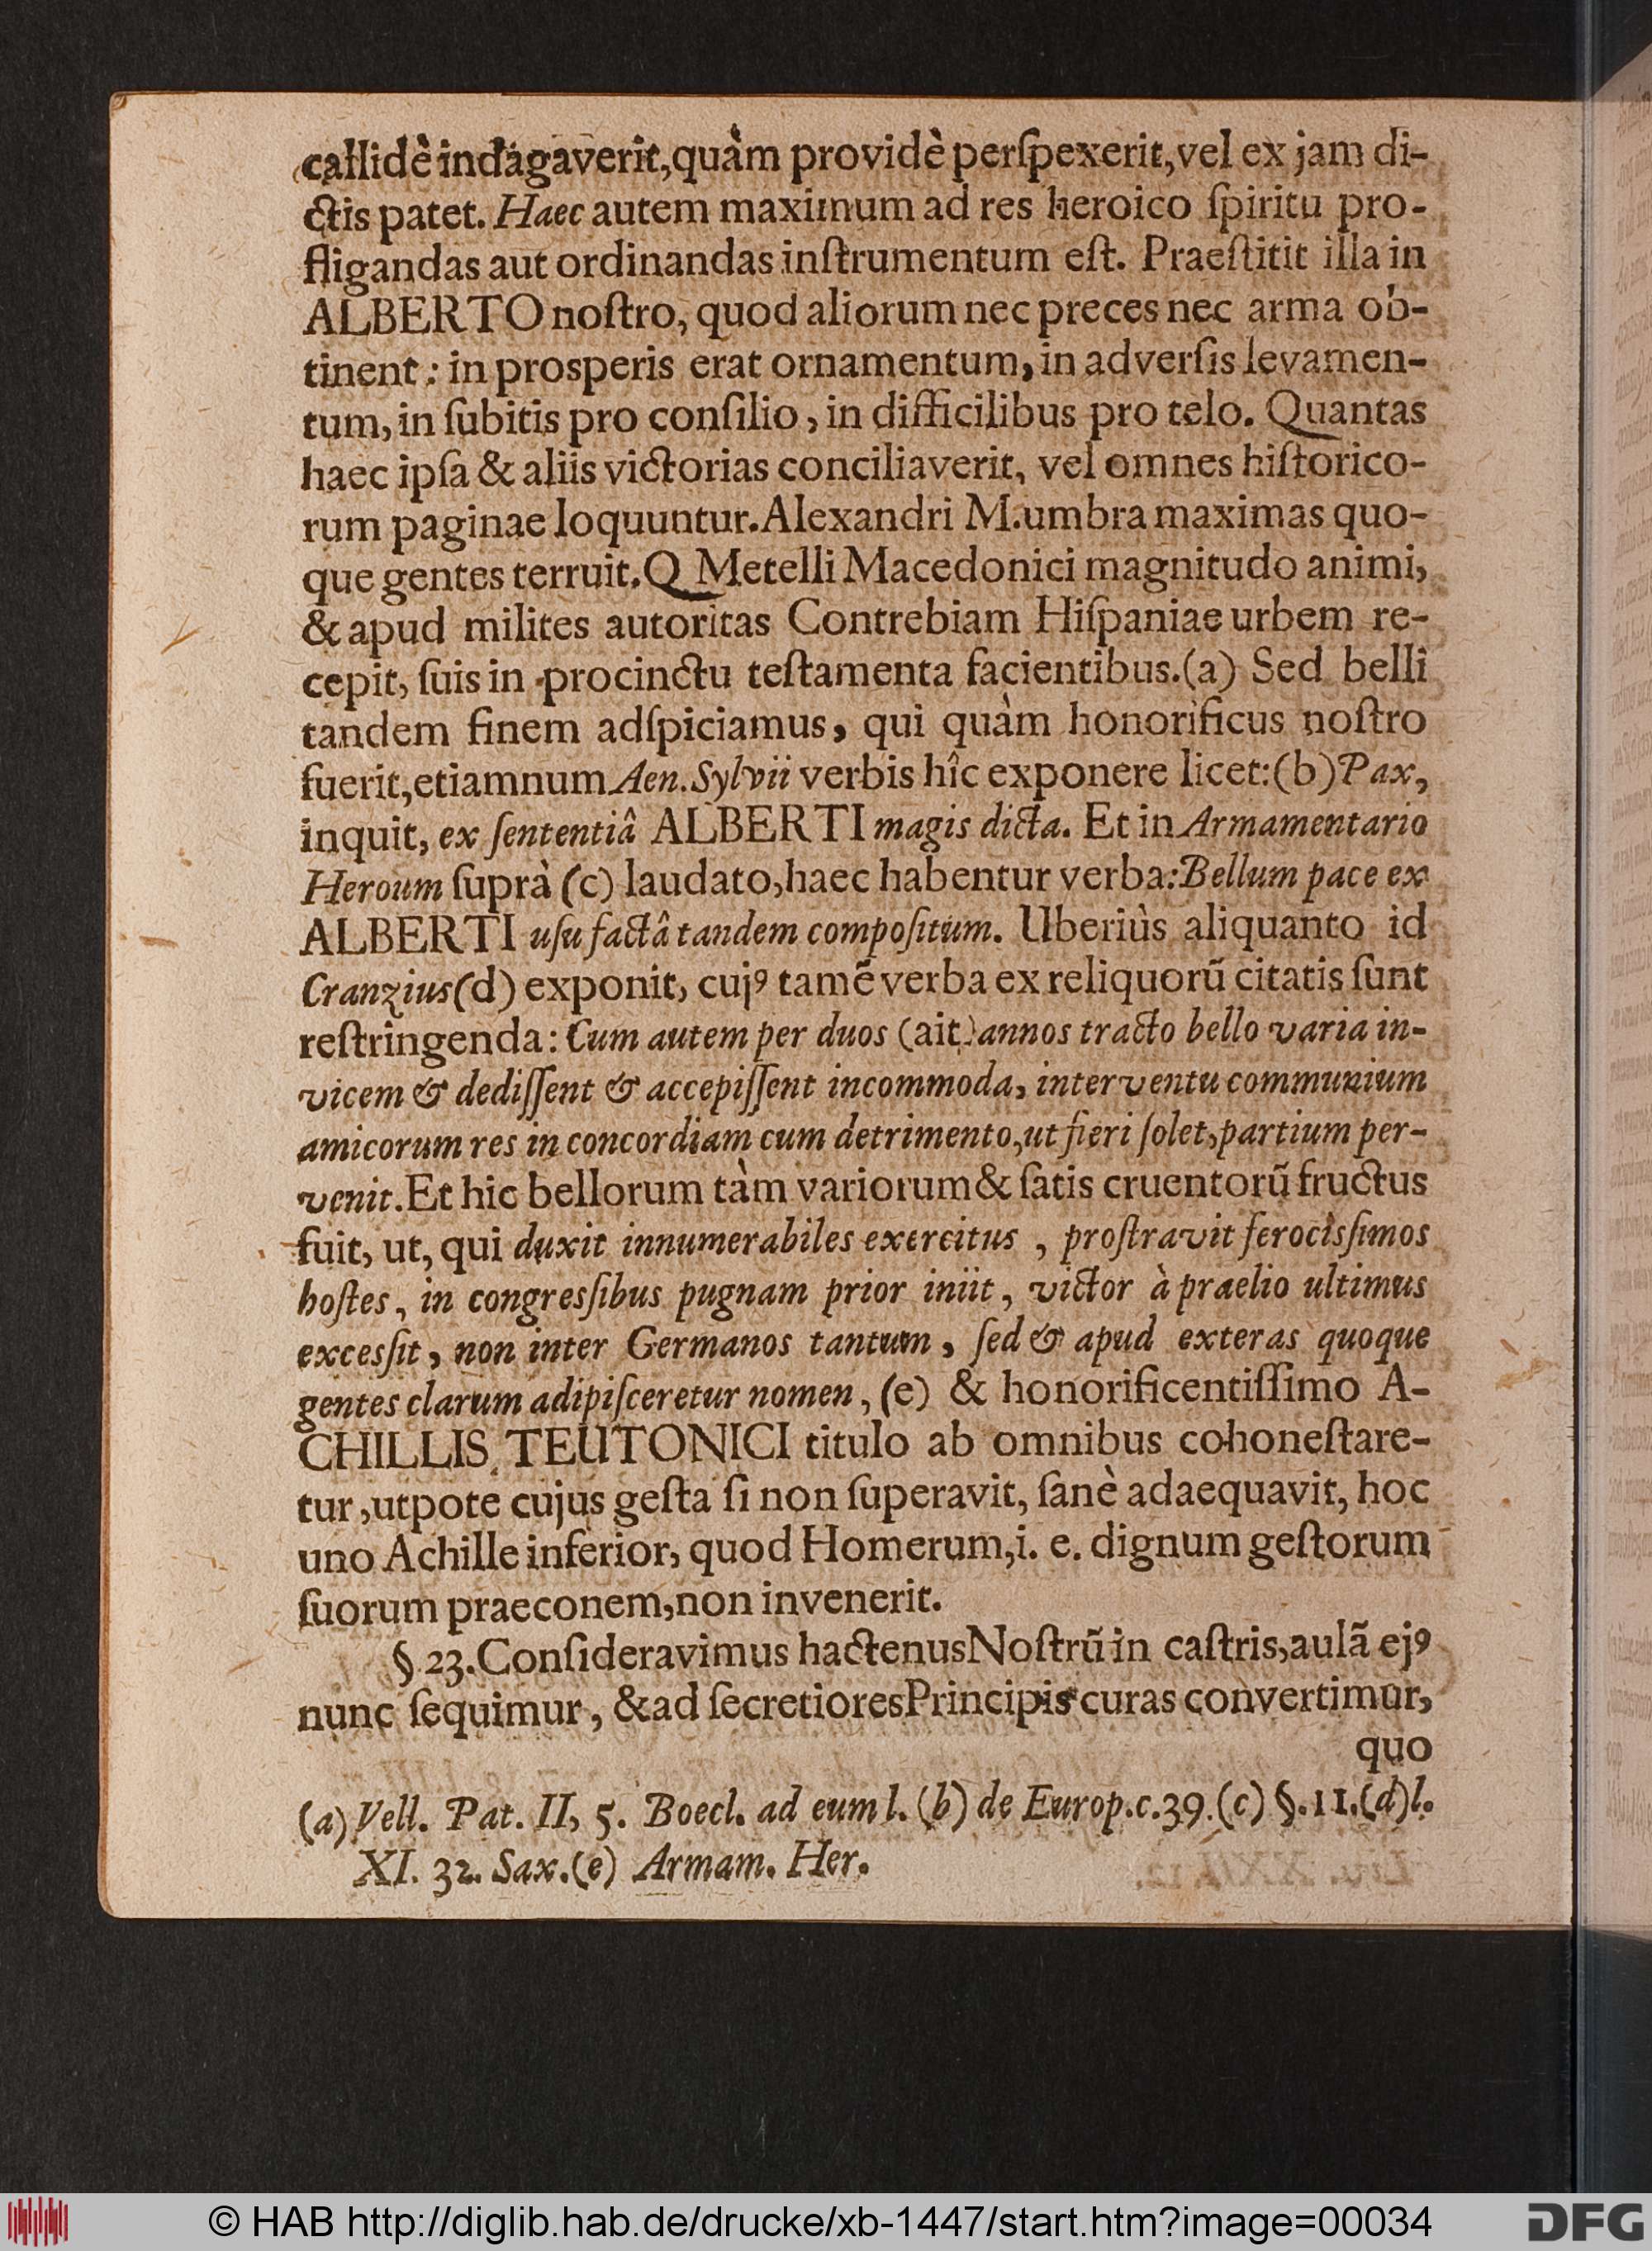 callidè indagaverit, quàm providè perſpexerit, vel ex jam di-
ctis patet. Haec autem maximum ad res heroico ſpiritu pro-
fligandas aut ordinandas inſtrumentum eſt. Praeſtitit illa in
ALBERTO noſtro, quod aliorum nec preces nec arma ob-
tinent: in prosperis erat ornamentum, in adverſis levamen-
tum, in ſubitis pro conſilio, in difficilibus pro telo. Quantas
haec ipſa & aliis victorias conciliaverit, vel omnes hiſtorico-
rum paginae loquuntur. Alexandri M. umbra maximas quo-
que gentes terruit. Q Metelli Macedonici magnitudo animi,
& apud milites autoritas Contrebiam Hiſpaniae urbem re-
cepit, ſuis in procinctu teſtamenta facientibus. (a) Sed belli
tandem finem adſpiciamus, qui quàm honorificus noſtro
fuerit, etiamnum Aen. Sylvii verbis hîc exponere licet: (b) Pax,
inquit, ex ſententiâ ALBERTI magis dicta. Et in Armamentario
Heroum ſuprà (c) laudato, haec habentur verba: Bellum pace ex
ALBERTI uſu factâ tandem compoſitum. Uberiùs aliquanto id
Cranzius (d) exponit, cujꝰ tamẽ verba ex reliquorũ citatis ſunt
reſtringenda: Cum autem per duos (ait) annos tracto bello varia in-
vicem & dediſſent & accepiſſent incommoda, interventu communium
amicorum res in concordiam cum detrimento, ut fieri ſolet, partium per-
venit. Et hic bellorum tàm variorum & ſatis cruentorũ fructus
fuit, ut, qui duxit innumerabiles exercitus , proſtravit ferocisſimos
hoſtes, in congresſibus pugnam prior iniit, victor à praelio ultimus
excesſit, non inter Germanos tantum, ſed & apud exteras quoque
gentes clarum adipiſceretur nomen, (e) & honorificentiſſimo A-
CHILLIS TEUTONICI titulo ab omnibus cohoneſtare-
tur, utpote cujus geſta ſi non ſuperavit, ſanè adaequavit, hoc
uno Achille inferior, quod Homerum, i. e. dignum geſtorum
ſuorum praeconem, non invenerit.
§. 23. Conſideravimus hactenus Noſtrũ in caſtris, aulã ejꝰ
nunc ſequimur, & ad ſecretiores Principis curas convertimur,
quo
(a) Vell. Pat. II, 5. Boecl. ad eum l. (b) de Europ. c. 39. (c) §. 11. (d) l.
XI. 32. Sax. (e) Armam. Her.
© HAB http://diglib.hab.de/drucke/xb-1447/start.htm?image=00034
DFG